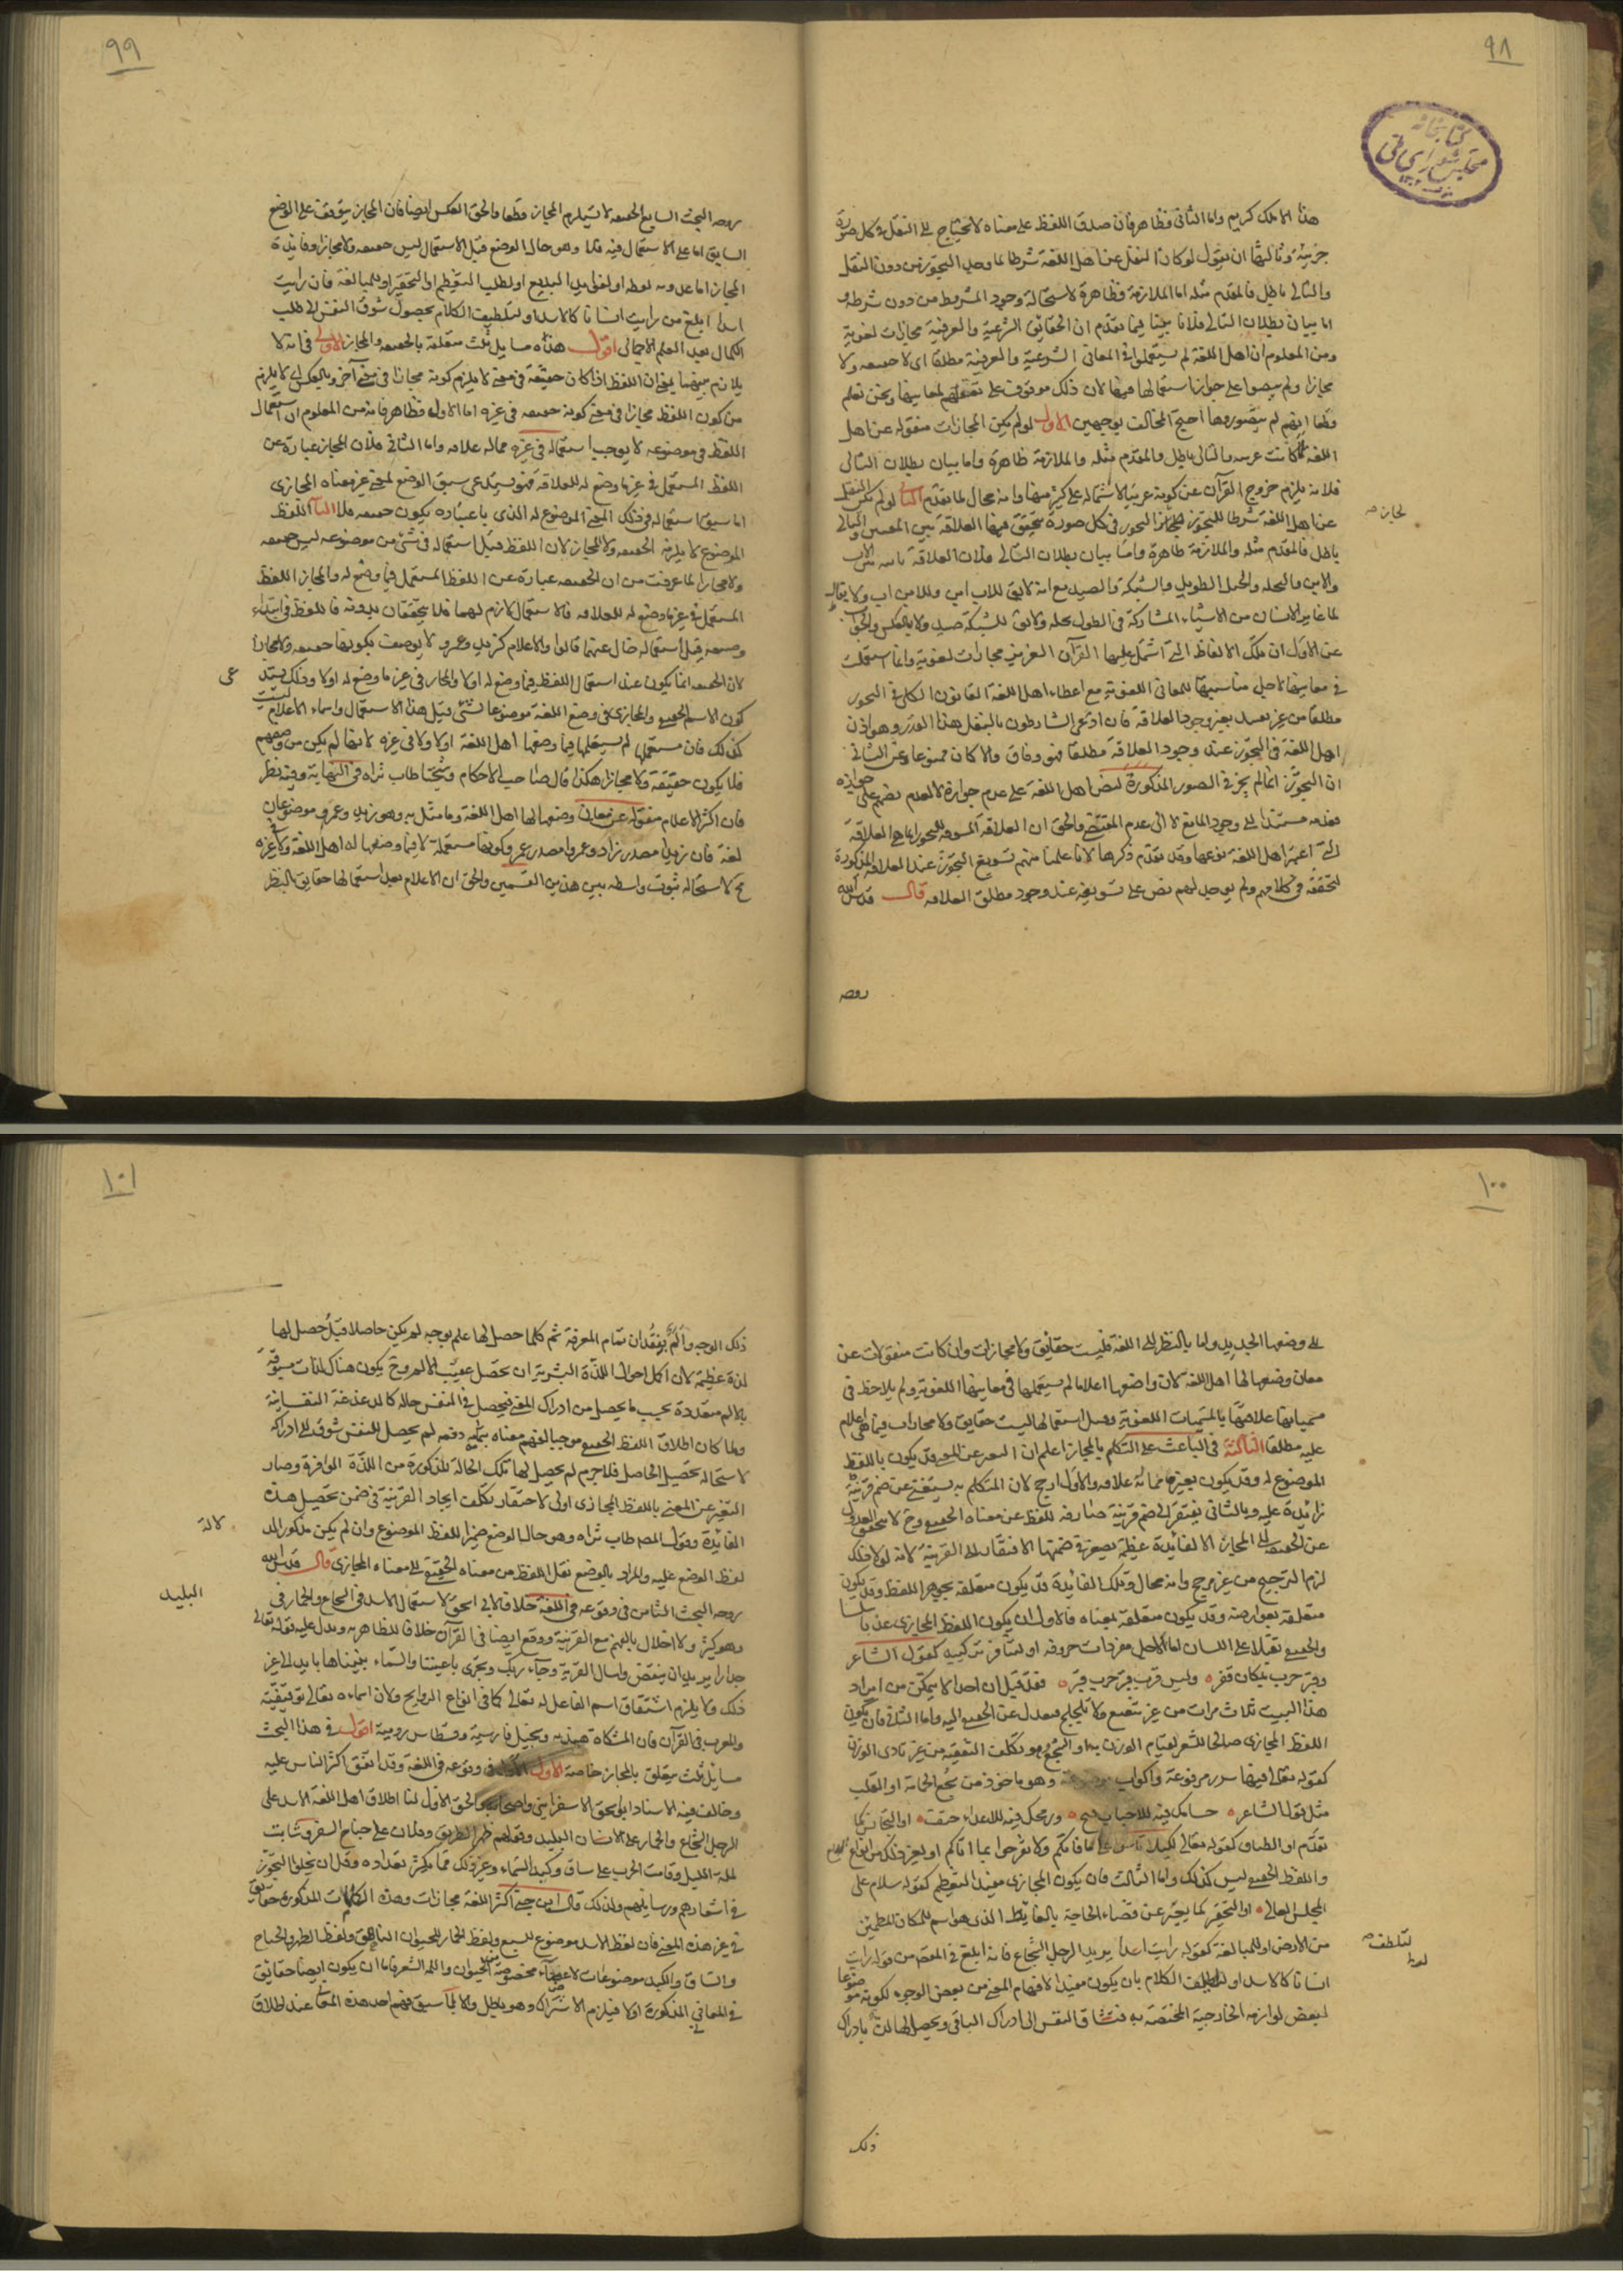 ٩٨
كتابخانه
مجلس شورای ملی
هذا الا ملك كريم واما الثاني فظاهر فان صدق اللفظ على معناه لا يحتاج الى النقل في كل صورة
جزئية وثالثها ان نقول لو كان النقل عن اهل اللغة شرطا لما وجد التجوز من دون النقل
والتالي باطل فالمقدم مثله اما الملازمة فظاهرة لاستحالة وجود المشروط من دون شرطه و
اما بيان بطلان التالي فلانا بينا فيما تقدم ان الحقايق الشرعية والعرفية مجازات لغوية
ومن المعلوم ان اهل اللغة لم يستعملوا في المعاني الشرعية والعرفية مطلقا اى لا حقيقه ولا
مجازا ولم ينصوا على جواز استعمالها فيها لان ذلك موقوف على تعقلهم لمعانيها ونحن نعلم
قطعا انهم لم يتصوروها احتج المخالف بوجهين الاول لو لم تكن المجازات منقوله عن اهل
اللغة لما كانت عربيه والتالى باطل والمقدم مثله والملازمة ظاهرة واما بيان بطلان التالى
فلانه يلزم خروج القرآن عن كونه عربيا لاشتماله على كثير منها وانه محال لما تقدم الثانى لو لم يكن النقل
عن اهل اللغة شرطا للتجوز لجاز التجوز فى كل صورة تتحقق فيها العلاقة بين المعنيين والتالى
لجاز صح
باطل فالمقدم مثله والملازمة ظاهرة واما بيان بطلان التالى فلان العلاقة ثابته بين الاب
والابن والنخله والحبل الطويل والشبكة والصيد مع انه لا يقال للاب ابن وللابن اب ولا يقال
لما غاير الانسان من الاشياء المشاركة فى الطول نخله ولا يقال للشبكة صيد ولا بالعكس والجواب
عن الاول ان تلك الالفاظ التى اشتمل عليها القرآن العزيز مجازات لغوية وانما استعملت
فى معانيها لاجل مناسبتها للمعانى اللغوية مع اعطاء اهل اللغة القانون الكلى فى التجوز
مطلقا من غير تقييد بغير وجود العلاقة فان ادعى الشارطون بالنقل هذا القدر وهو اذن
اهل اللغة فى التجوز عند وجود العلاقة مطلقا فهو وفاق والا كان ممنوعا وعن الثانى
ان التجوز انما لم يجز فى الصور المذكورة لنص اهل اللغة على عدم جوازه لا لعدم نصهم على جوازه
فعدمه مستند الى وجود المانع لا الى عدم المقتضى والحق ان العلاقة المسوغة للتجوز انما هى العلاقة
التى اعتبر اهل اللغة نوعها وقد تقدم ذكرها لانا علمنا منهم تسويغ التجوز عند العلاقة المذكورة
لتحققه فى كلامهم ولم يوجد لهم نص على تسويغه عند وجود مطلق العلاقه قال قدس الله
روحه
٩٩
روحه البحث السابع الحقيقه لا تستلزم المجاز قطعا والحق العكس ايضا فان المجاز يتوقف على الوضع
السابق اما على الاستعمال فيه فلا وهو حال الوضع قبل الاستعمال ليس حقيقه ولا مجازا وفائدة
المجاز اما عذوبه لفظه او لغرض البديع او لطلب التعظيم او التحقير او للمبالغة فان رايت
اسدا ابلغ من رايت انسانا كالاسد او لتلطيف الكلام بحصول شوق النفس الى طلب
الكمال بعد العلم الاجمالى اقول هذه مسايل ثلث متعلقة بالحقيقه والمجاز الاولى فى انه لا
يلازم بينهما يعنى ان اللفظ اذا كان حقيقة فى معنى لا يلزم كونه مجازا فى معنى آخر وبالعكس اى لا يلزم
من كون اللفظ مجازا فى معنى كونه حقيقه فى غيره اما الاول فظاهر فانه من المعلوم ان استعمال
اللفظ فى موضوعه لا يوجب استعماله فى غيره مما له علاقه واما الثانى فلان المجاز عبارة عن
اللفظ المستعمل فى غير ما وضع له للعلاقه فهو يستدعى سبق الوضع لمعنى غير معناه المجازى
اما سبق استعماله فى ذلك المعنى الموضوع له الذى باعتباره يكون حقيقه فلا الثانية اللفظ
الموضوع لا يلزمه الحقيقه ولا المجاز لان اللفظ قبل استعماله فى شئ من موضوعه ليس حقيقه
ولا مجازا لما عرفت من ان الحقيقه عبارة عن اللفظ المستعمل فيما وضع له والمجاز اللفظ
المستعمل فى غير ما وضع له للعلاقه فالاستعمال لازم لهما فلا يتحققان بدونه فاللفظ فى ابتداء
وضعه قبل استعماله خال عنهما قالوا والاعلام كزيد وعمرو لا يوصف بكونها حقيقه ولا مجازا
لان الحقيقه انما يكون عند استعمال اللفظ فيما وضع له اولا والمجاز فى غير ما وضع له اولا وذلك يستدعى
كون الاسم الحقيقى والمجازى فى وضع اللغة موضوعا لشئ قبل هذا الاستعمال واسماء الاعلام ليست
كذلك فان مستعملها لم يستعملها فيما وضعها اهل اللغة اولا ولا فى غيره لانها لم يكن من وضعهم
فلا يكون حقيقة ولا مجازا هكذا قال صاحب الاحكام وشيخنا طاب ثراه فى النهاية وفيه نظر
فان اكثر الاعلام منقوله عن معان وضعها لها اهل اللغة وما مثل به وهو زيد وعمرو موضوعان
لغة فان زيدا مصدر زاد وعمروا مصدر عمر وكونها مستعملة لا فيما وضعها له اهل اللغة ولا فى غيره
مح لاستحالة ثبوت واسطه بين هذين القسمين والحق ان الاعلام بعد استعمالها حقايق بالنظر
١٠٠
الى وضعها الجديد واما بالنظر الى اللغة فليست حقائق ولا مجازات وان كانت منقولات عن
معان وضعها لها اهل اللغة لان واضعها اعلاما لم يستعملها فى معانيها اللغوية ولم يلاحظ فى
مسمياتها علاقتها بالمسميات اللغوية وقبل استعمالها ليست حقايق ولا مجازات فيما هى اعلام
عليه مطلقا الثالثة فى الباعث على التكلم بالمجاز اعلم ان التعبير عن المعنى قد يكون باللفظ
الموضوع له وقد يكون بغيره مما له علاقه والاول ارجح لان المتكلم به يستغنى عن ضم قرينة
زائدة عليه وبالثانى يفتقر الى ضم قرينة صارفة للفظ عن معناه الحقيقى وح لا يتحقق العدول
عن الحقيقه الى المجاز الا لفائدة عظيمة يصغر فى ضمنها الافتقار الى القرينة لانه لولا ذلك
لزم الترجيح من غير مرجح وانه محال وتلك الفائدة قد يكون متعلقه بجوهر اللفظ وقد يكون
متعلقة بعوارضه وقد يكون متعلقة بمعناه فالاول ان يكون اللفظ المجازى عذبا سلسا
والحقيقى ثقيلا على اللسان اما لاجل مفردات حروفه او لتنافر تركيبه كقول الشاعر
وقبر حرب بمكان قفر ۰ وليس قرب قبر حرب قبر ۰ فقد قيل ان احدا لا يتمكن من ايراد
هذا البيت ثلاث مرات من غير تتعتع ولا تلجلج فيعدل عن الحقيقى اليه واما الثانى فان يكون
اللفظ المجازى صالحا للشعر لقيام الوزن به او السجع وتكلف التقفيه من غير تادى الوزن
كقوله تعالى فيها سرر مرفوعة واكواب موضوعة وهو ماخوذ من سجع الحمامة او القلب
مثل قول الشاعر ۰ حسامك فيه للاحباب فتح ۰ ورمحك فيه للاعداء حتف ۰ او التجانس كما
تقدم او الطباق كقوله تعالى لكيلا تاسوا على ما فاتكم ولا تفرحوا بما اتاكم او لغير ذلك من انواع البديع
واللفظ الحقيقى ليس كذلك واما الثالث فان يكون المجازى مفيدا للتعظيم كقوله سلام على
المجلس العالى ۰ او التحقير كما يعبر عن قضاء الحاجة بالغائط الذى هو اسم للمكان المطمئن
من الارض او للمبالغة كقوله رايت اسدا يريد الرجل الشجاع فانه ابلغ فى المعنى من قوله رايت
انسانا كالاسد او لتلطيف الكلام بان يكون مفيدا لافهام المعنى من بعض الوجوه لكونه موضوعا
لبعض لوازمه الخارجية المختصة به فتشتاق النفس الى ادراك الباقى ويحصل لها لذة بادراك
ذلك
١٠١
ذلك الوجه والم بفقدان تمام المعرفة ثم كلما حصل لها علم بوجه لم يكن حاصلا قبل حصل لها
لذة عظيمة لان اكمل احوال اللذة البشرية ان تحصل عقيب الالم وح يكون هناك لذات مسبوقة
بالالم متعددة بحسب ما يحصل من ادراك المعنى فيحصل فى النفس حالة كالدغدغة النفسانية
ولما كان اطلاق اللفظ الحقيقى موجبا لفهم معناه بتمامه دفعه لم يحصل للنفس شوق الى ادراكه
لاستحالة تحصيل الحاصل فلا جرم لم يحصل لها تلك الحالة المذكورة من اللذة الوافرة وصار
التعبير عن المعنى باللفظ المجازى اولى لاحتقار تكلف ايجاد القرينة فى ضمن تحصيل هذه
الفائدة وقول المص طاب ثراه وهو حال الوضع ضمير للفظ الموضوع وان لم يكن مذكورا لدلالة
لفظ الوضع عليه والمراد بالوضع نقل اللفظ من معناه الحقيقى الى معناه المجازى قال قدس الله
روحه البحث الثامن فى وقوعه فى اللغة خلافا لابى اسحق لاستعمال الاسد فى الشجاع والحمار فى
البليد
وهو كثير ولا اخلال بالفهم مع القرينة ووقع ايضا فى القرآن خلافا للظاهريه ويدل عليه قوله تعالى
جدارا يريد ان ينقض واسال القرية وجاء ربك وتجرى باعيننا والسماء بنيناها بايد الى غير
ذلك ولا يلزم اشتقاق اسم الفاعل له تعالى كما فى انواع الروايح ولان اسماءه تعالى توقيفية
والمعرب فى القرآن فان المشكاة هنديه وسجيل فارسية وقسطاس روميه اقول فى هذا البحث
مسايل ثلث يتعلق بالمجاز خاصة الاولى فى وقوعه فى اللغة وقد اتفق اكثر الناس عليه
وخالف فيه الاستاد ابو اسحق الاسفراينى واصحابه والحق الاول لنا اطلاق اهل اللغة الاسد على
الرجل الشجاع والحمار على الانسان البليد وقولهم ظهر الطريق وفلان على جناح السفر وشابت
لمة الليل وقامت الحرب على ساق وكبد السماء وغير ذلك مما يكثر تعداده وقل ان يخلو التجوز
فى اشعارهم ورسايلهم ولذلك قال ابن جنى اكثر اللغة مجازات وهذه الكلمات المذكورة حقايق
فى غير هذه المعنى فان لفظ الاسد موضوع للسبع ولفظ الحمار للحيوان الناهق ولفظ الظهر والجناح
والساق والكبد موضوعات لاعضاء مخصوصة من الحيوان واللمة الشعر فاما ان يكون ايضا حقايق
فى المعانى المذكورة اولا فيلزم الاشتراك وهو باطل والا لما سبق فهم احد هذه المعانى عند اطلاق